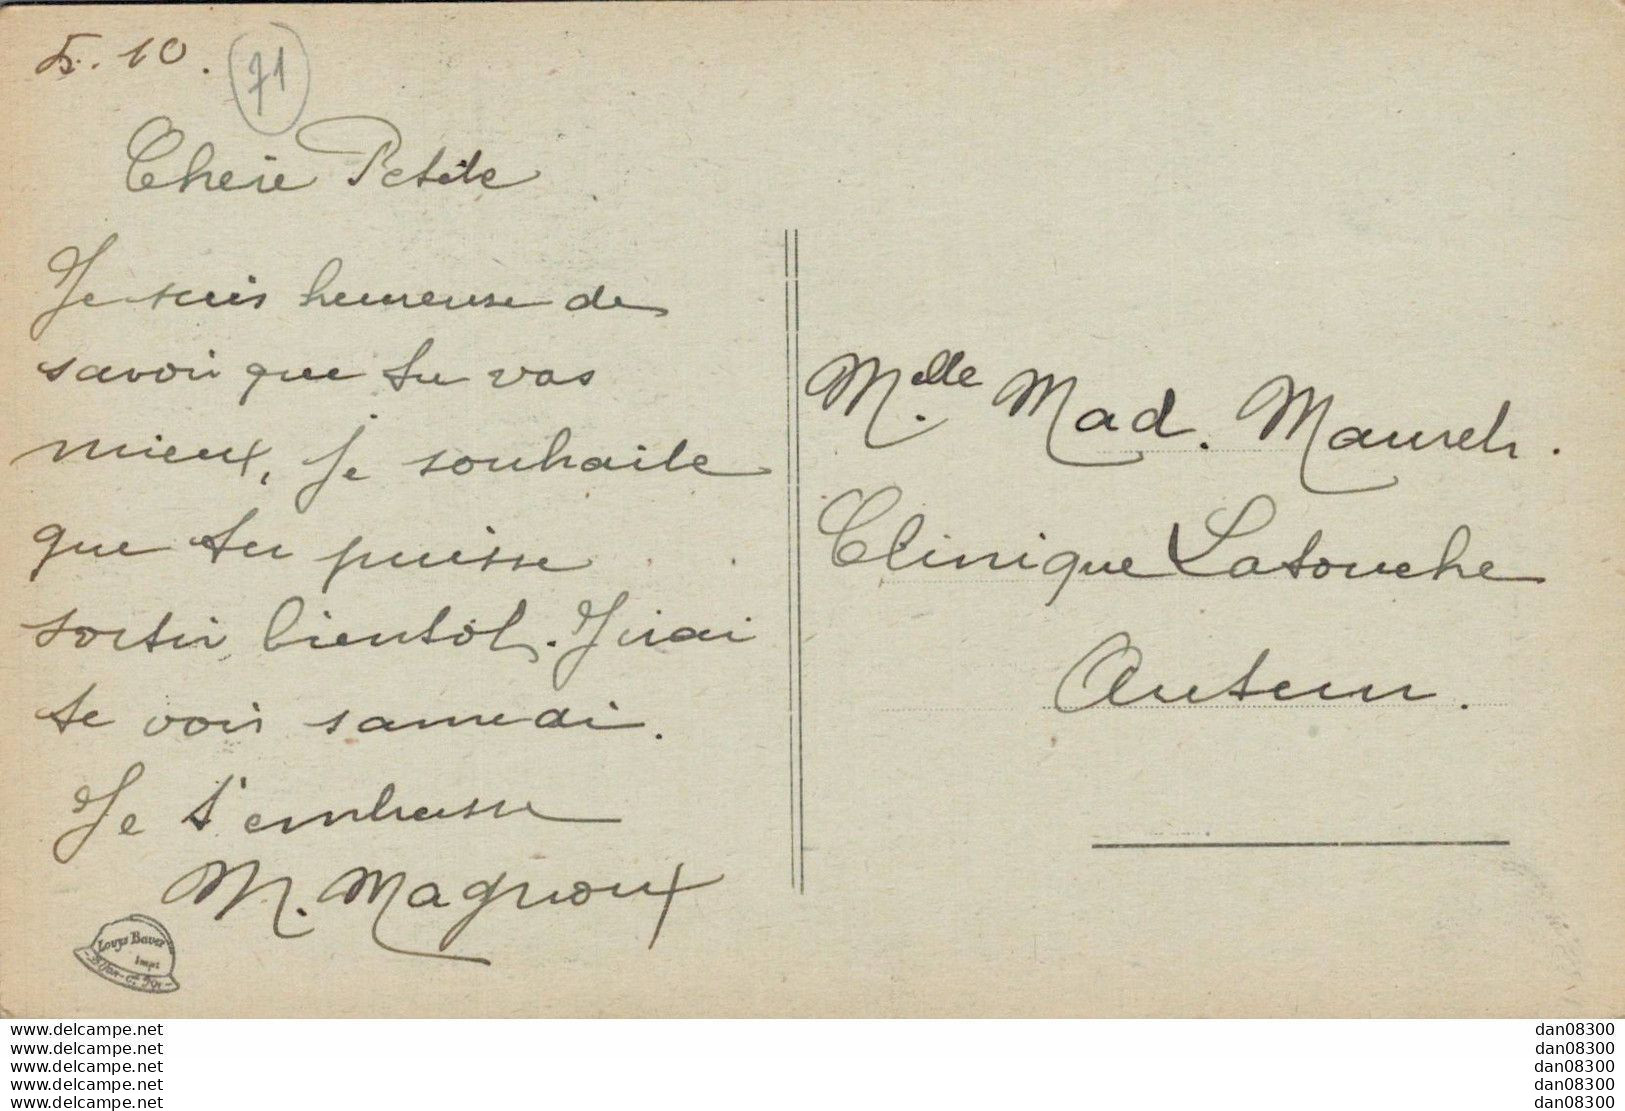 5. 10.
71
Cherie Petite
Je suis heureuse de
savoir que tu vas
mieux, je souhaite
que tu puisse
sortir bientôt. J'irai
te voir samedi.
Je t'embrasse
M. Magnoux
Melle Mad.
Clinique Latouche
Autun.
Louys Bauer
Impr
Dijon
www.delcampe.net
www.delcampe.net
www.delcampe.net
www.delcampe.net
www.delcampe.net
dan08300
dan08300
dan08300
dan08300
dan08300